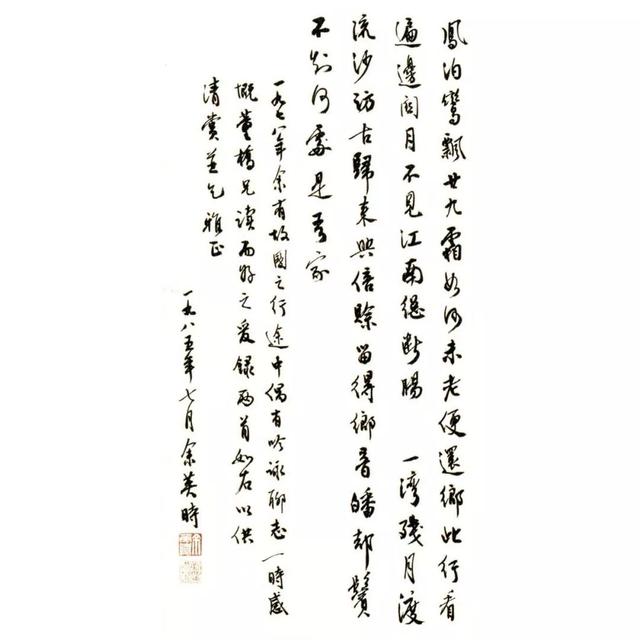 鳳泊鸞飄廿九霜如何未老便還鄉此行看
遍邊關月不見江南總斷腸 一灣殘月渡
流沙訪古歸來興倍賒留得鄉音皤却鬢
不知何處是吾家
一九七八年余有故國之行途中偶有吟詠聊志一時感
慨董橋兄讀而好之爰錄兩首如右以供
清賞並乞雅正
一九八五年七月余英時